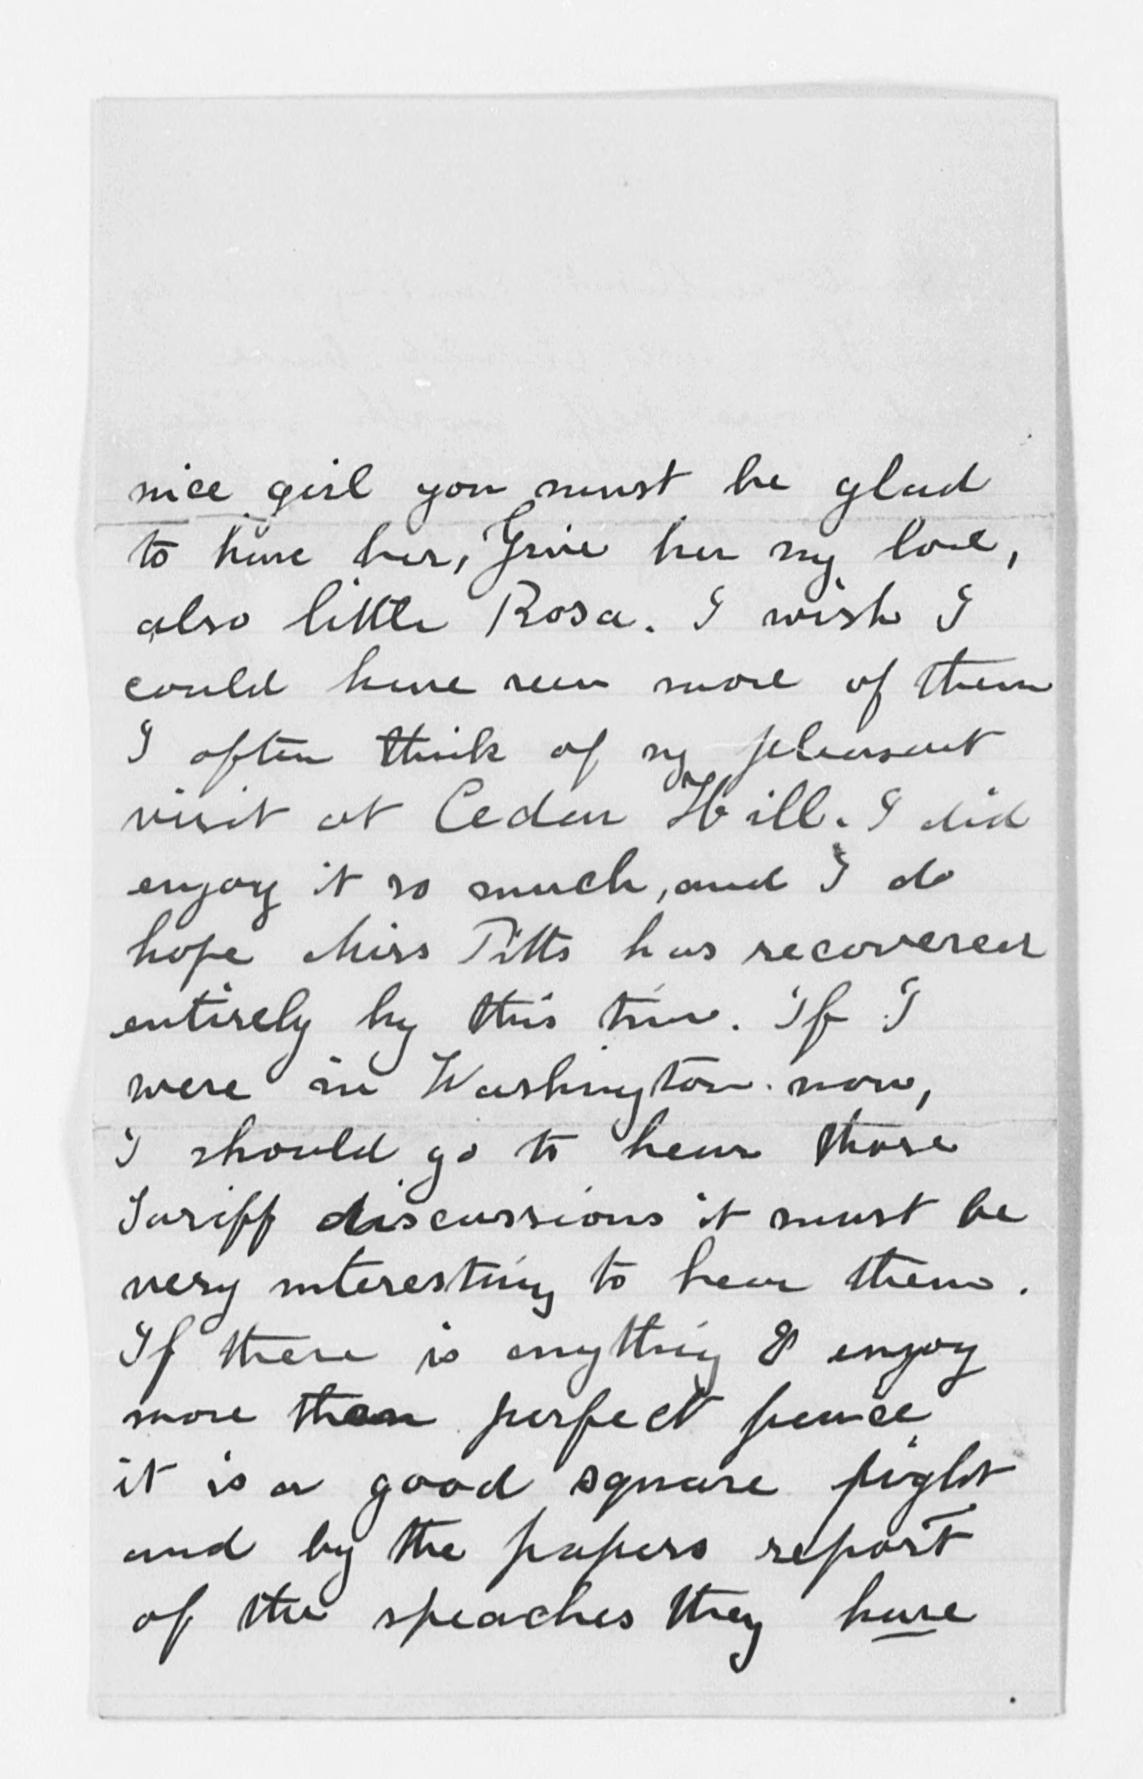 nice girl you must be glad
to have her, Give her my love,
also little Rosa. I wish I
could have seen more of them
I often think of my pleasant
visit at Cedar Hill. I did
enjoy it so much, and I do
hope Miss Pitts has recovered
entirely by this time. If I
were in Washington now,
I should go to hear those
Tariff discussions it must be
very interesting to hear them.
If there is anything I enjoy
more than perfect peace
it is a good square fight
and by the papers report
of the speaches they have